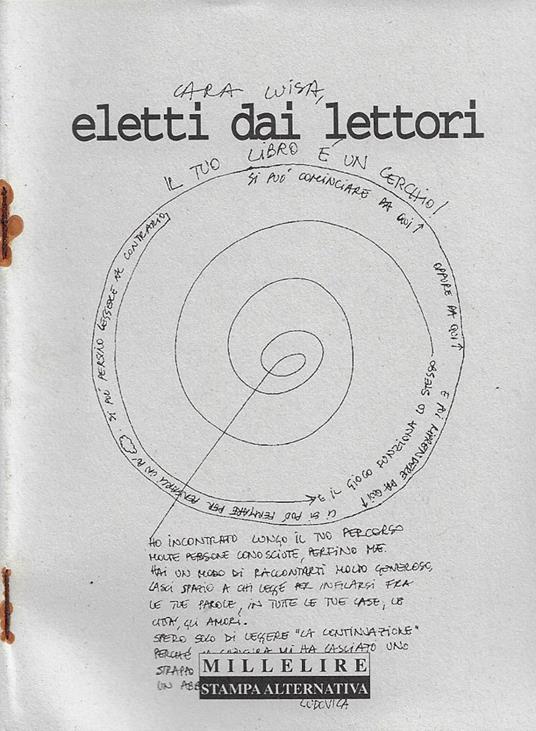 CARA LUISA,
eletti dai lettori
IL TUO LIBRO È UN CERCHIO!
SI PUÒ COMINCIARE DA QUI ↑
OPPURE DA QUI ↑
E POI RIPRENDERE DA QUI ↑
E IL GIOCO FUNZIONA LO STESSO
CI SI PUÒ FERMARE PER PENSARCI UN PO'
SI PUÒ PERSINO LEGGERE AL CONTRARIO,
HO INCONTRATO LUNGO IL TUO PERCORSO
MOLTE PERSONE CONOSCIUTE, PERFINO ME.
HAI UN MODO DI RACCONTARTI MOLTO GENEROSO,
LASCI SPAZIO A CHI LEGGE PER INFILARSI FRA
LE TUE PAROLE, IN TUTTE LE TUE CASE, LE
CITTÀ, GLI AMORI.
SPERO SOLO DI LEGGERE "LA CONTINUAZIONE"
PERCHÉ LA CHIUSURA MI HA LASCIATO UNO
STRAPPO
UN ABB
MILLELIRE
STAMPA ALTERNATIVA
LUDOVICA